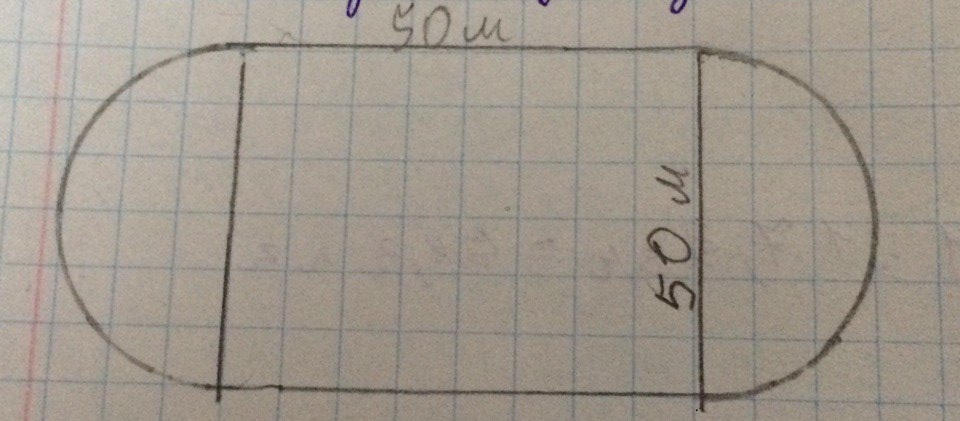 50 м
50 м